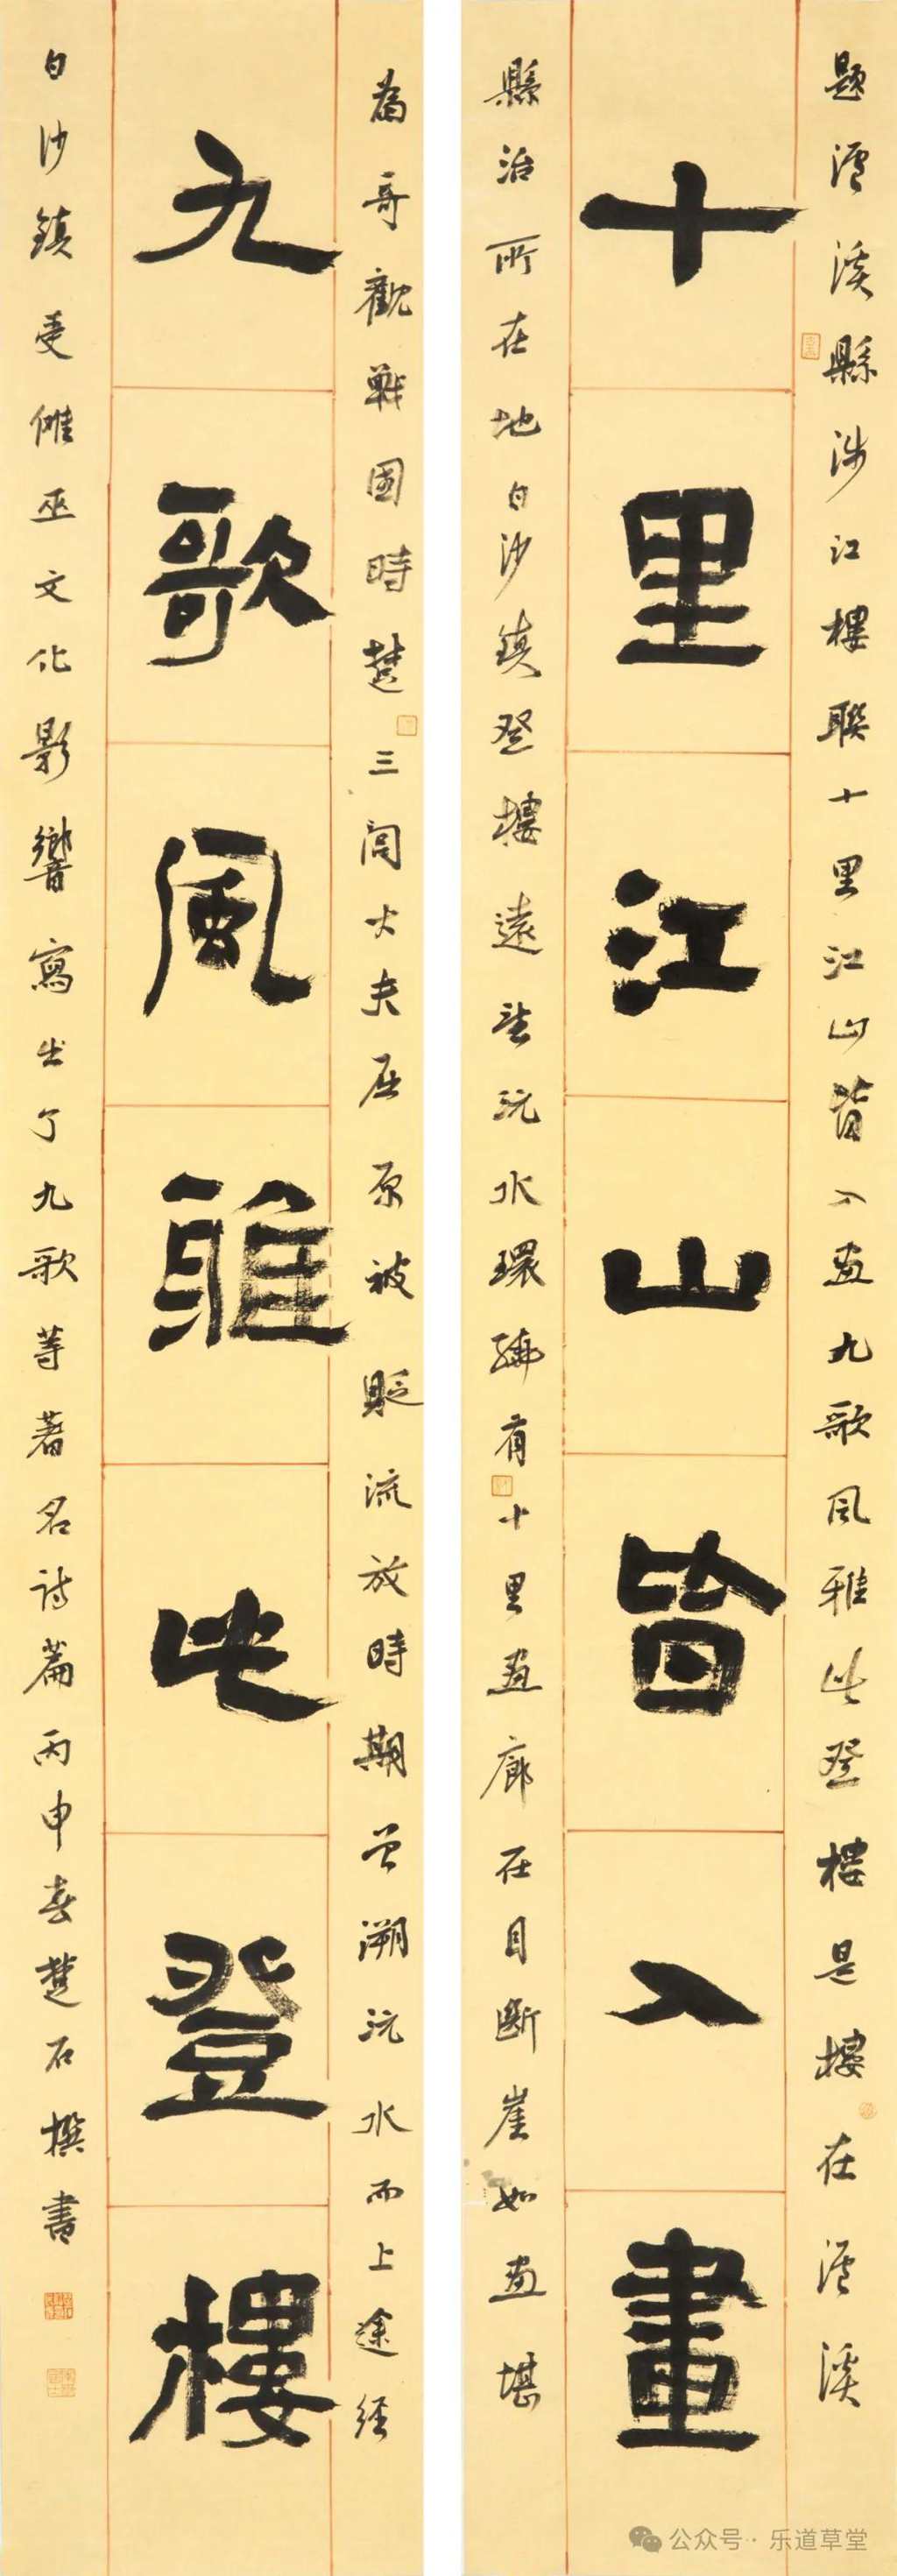 題瀘溪縣涉江樓聯十里江山皆入畫九歌風雅此登樓是樓在瀘溪
十里江山皆入畫
縣治所在地白沙鎮登樓遠望沅水環繞有十里畫廊在目斷崖如畫堪
為哥觀戰國時楚三閭大夫屈原被貶流放時期曾溯沅水而上途經
九歌風雅此登樓
白沙鎮受儺巫文化影響寫出了九歌等著名詩篇丙申春楚石撰書
公众号·乐道草堂